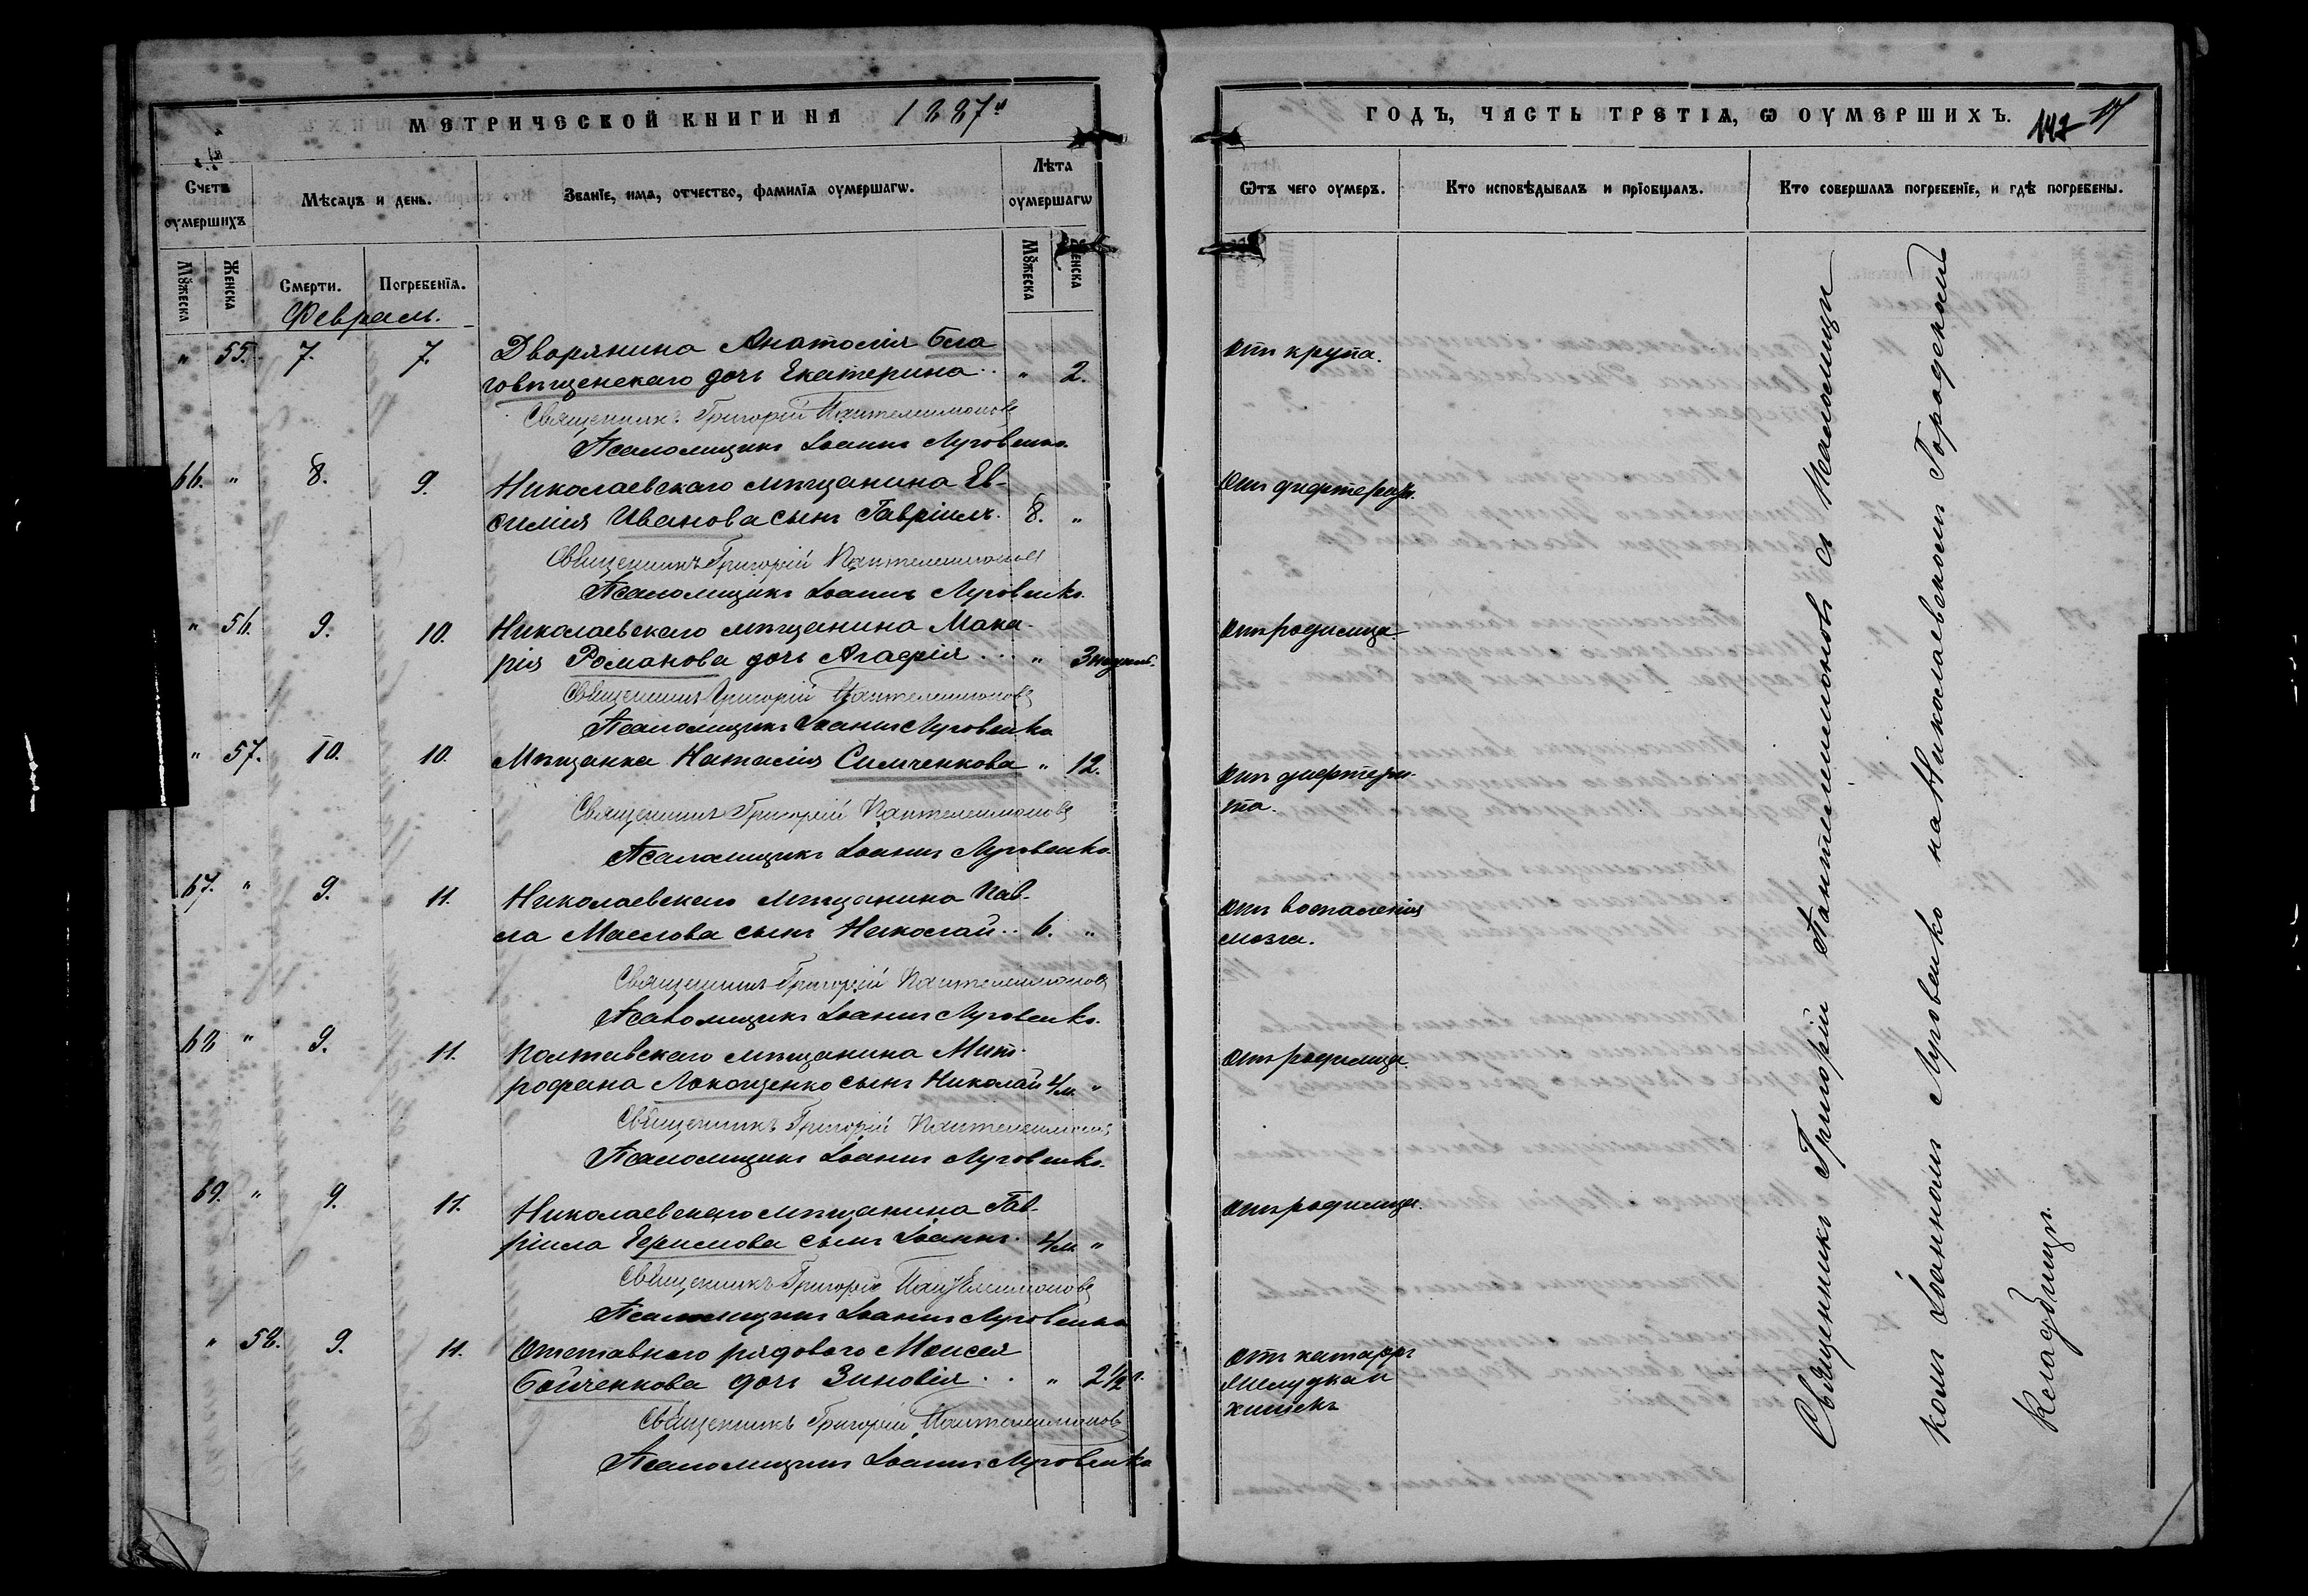 МЕТРИЧЕСКОЙ КНИГИ НА 1887й
ГОДЪ, ЧАСТЬ ТРЕТІѦ, Ѡ ОУМЕРШИХЪ.
142
17
Счетъ оумершихъ
Мѣсѧцъ и день.
Званїе, имѧ, отчество, фамилїѧ оумершагѡ.
Лѣта оумершагѡ
Мꙋжеска
Женска
Смерти.
Погребенїѧ.
Мꙋжеска
Женска
Ѿтъ чего оумеръ.
Кто исповѣдывалъ и прїобщалъ.
Кто совершалъ погребенїе, и гдѣ погребены.
Февраль.
" 55. 7. 7. Дворянина Анатолія Бла
говѣщенскаго дочь Екатерина.. " 2. отъ крупа.
Священникъ Григорій Пантелеимоновъ
Псаломщикъ Іоаннъ Луговенко.
66. " 8. 9. Николаевскаго мѣщанина Ев-
Иванова сынъ Гавріилъ. 8. " отъ дифтерита.
Священникъ Григорій Пантелеимоновъ
Псаломщикъ Іоаннъ Луговенко.
" 56. 9. 10. Николаевскаго мѣщанина Мака-
рія Романова дочь Агафія... " 3 отъ родимца
Священникъ Григорій Пантелеимоновъ
Псаломщикъ Іоаннъ Луговенко
" 57. 10. 10. Мѣщанка Наталія Симченкова " 12. отъ дифтери-
та.
Священникъ Григорій Пантелеимоновъ
Псаломщикъ Іоаннъ Луговенко.
67. " 9. 11. Николаевскаго мѣщанина Пав-
ла Маслова сынъ Николай.. 6. " отъ воспаленія
мозга.
Священникъ Григорій Пантелеимоновъ
Псаломщикъ Іоаннъ Луговенко.
68 " 9. 11. Полтавскаго мѣщанина Мит-
рофана Локощенко сынъ Николай 4/м. " отъ родимца.
Священникъ Григорій Пантелеимоновъ
Псаломщикъ Іоаннъ Луговенко.
69. " 9. 11. Николаевскаго мѣщанина Гав-
ріила сынъ Іоаннъ. 4/м. " отъ родимца.
Священникъ Григорій Пантелеимоновъ
Псаломщикъ Іоаннъ Луговенко
" 58. 9. 11. Отставнаго рядоваго Моисея
Бойченкова дочь Зиновія.. " 2½ г. отъ катарра
желудка и
кишекъ
Священникъ Григорій Пантелеимоновъ
Псаломщикъ Іоаннъ Луговенко
Священникъ Григорій Пантелеимоновъ съ Псаломщи
комъ Іоанномъ Луговенко на Николаевскомъ Городскомъ
Кладбищѣ.